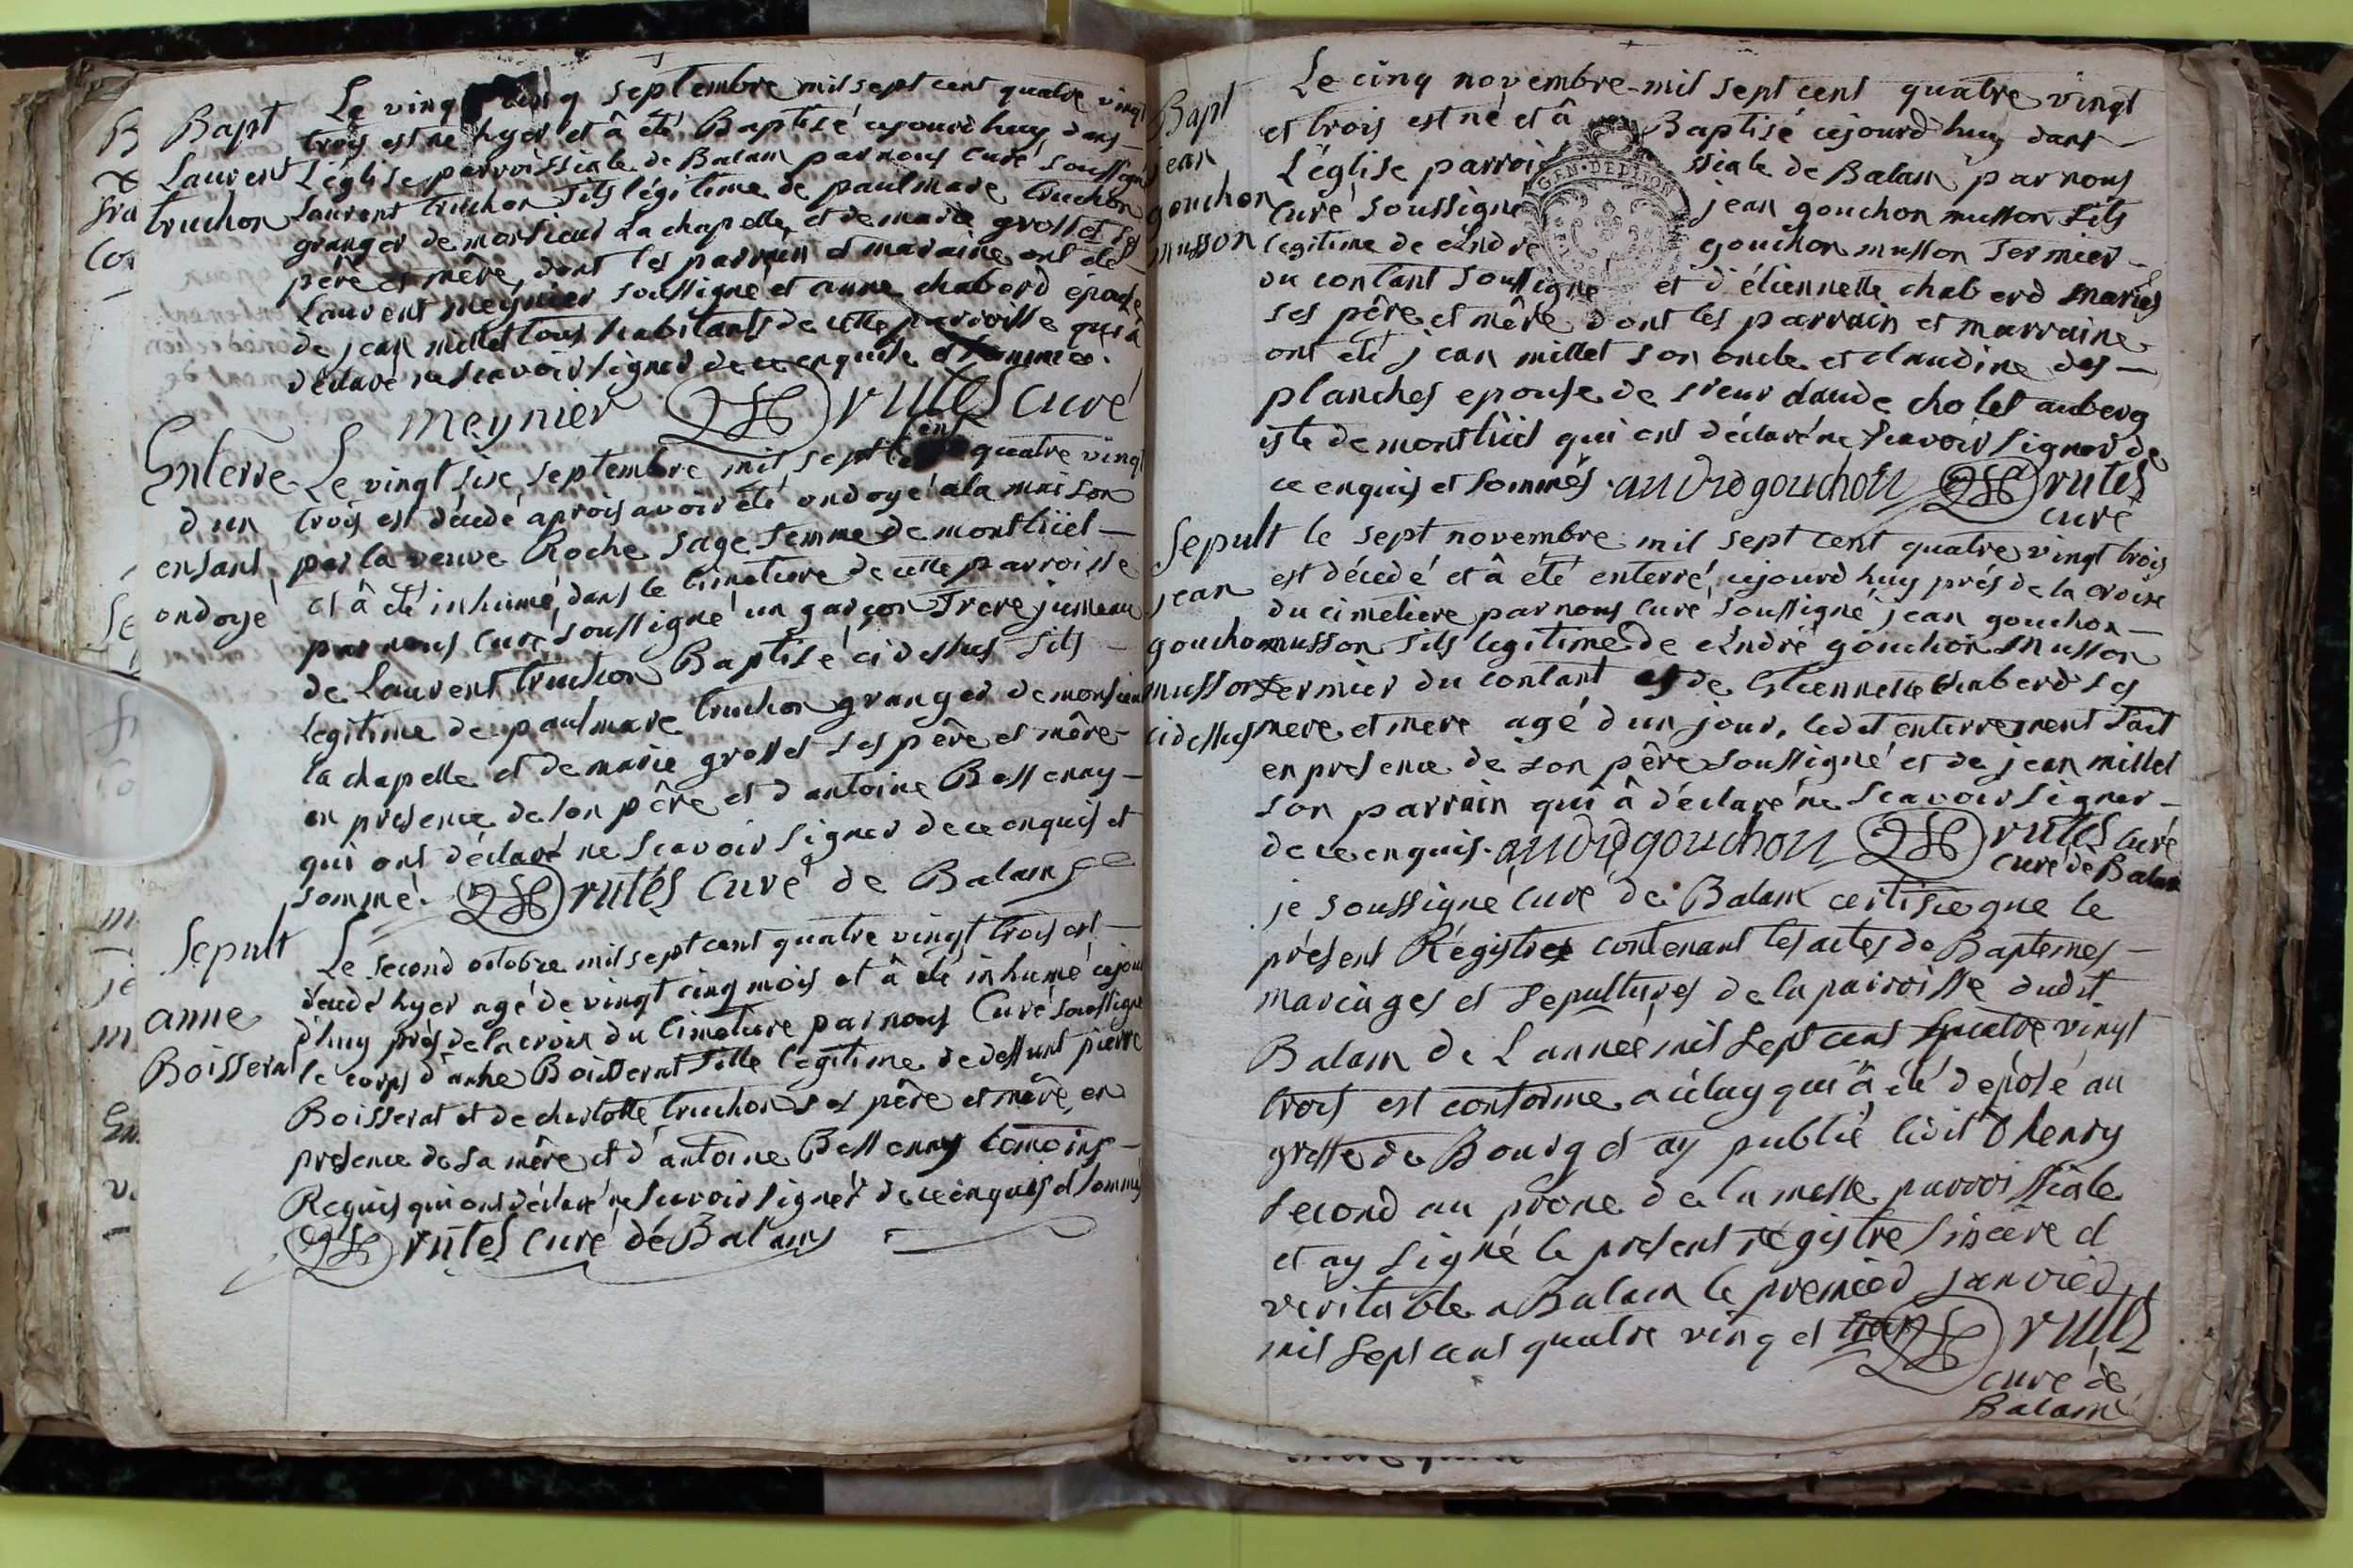 Bapt
Laurent
truchon
Le vingt cinq septembre mil sept cent quatre vingt
trois est ne hyer et â été Baptisé cejourdhuy dans
L'église parroissiale de Balam par nous curé soussigné
Laurent truchon fils légitime de paulmare truchon
granger de monsieur La chapelle, et de marie grosset ses
père et mêre, dont les parrain et maraine ont été
Laurent meynier soussigné et anne chaberd épouse
de jean millet tous habitants de cette parroisse qui a
déclaré ne scavoir signer de ce enquise et sommée.
meynier rutés curé
Enterre
d'un
enfant
ondoyé
Le vingt six septembre mil sept cent quatre vingt
trois est décedé aprois avoir été ondoyé a la maison
par la veuve Roche sage femme de montlüel
et â été inhumé dans le cimetiere de cette parroisse
par nous curé soussigné un garçon frere jumeau
de Laurent truchon Baptisé ci dessus fils
legitime de paulmare truchon granger de monsieur
la chapelle et de marie grosset ses père et mêre
en presence de son pêre et d'antoine Bessenay
qui ont déclaré ne scavoir signer de ce enquis et
sommé. rutés curé de Balam
Sepult
anne
Boisserat
Le second octobre mil sept cent quatre vingt trois est
décedé hyer agé de vingt cinq mois et â été inhumé cejour
d'huy prés de la croix du cimetiere par nous Curé soussigné
le corps d'anne Boisserat fille legitime de deffunt pierre
Boisserat et de charlotte truchon ses pêre et mêre, en
presence de sa mêre et d'antoine Bessenay temoins
Requis qui ont déclaré ne scavoir signer de ce enquis et sommé
rutés curé dé Balam
Bapt
jean
gouchon
musson
Le cinq novembre mil sept cent quatre vingt
et trois est né et â Baptisé cejourd'huy dans
L'église parroissiale de Balam par nous
curé soussigné jean gouchon musson fils
legitime de André gouchon musson fermier
du contant soussigné et d'étiennette chaberd mariés
ses pêre et mêre dont les parrain et marraine
ont été jean millet son oncle et claudine des
planches epouse de sieur claude cholet auberg
iste de montlüel qui ont déclaré ne scavoir signer de
ce enquis et sommés. andre gouchon rutés
curé
Sepult
jean
gouchon
musson
ci dessus
le sept novembre mil sept cent quatre vingt trois
est décedé et â été enterré cejourd'huy prés de la croix
du cimetiere par nous curé soussigné jean gouchon
musson fils legitime de André gouchon musson
fermier du contant et de Etiennette chaberd ses
mere et mere agé d'un jour, ledit enterrement fait
en presence de son pêre soussigné et de jean millet
son parrain qui â déclaré ne scavoir signer
de ce enquis. andre gouchon rutés curé
curé de Balam
je soussigné curé de Balam certifie que le
présent Régistre contenant les actes de Baptemes
mariages et sepultures de la parroisse dudit
Balam de L'année mil sept cent quatre vingt
trois est conforme a céluy qui â été déposé au
greffe de Bourg et ay publié l'édit d'henry
second au prone de la messe parroissiale
et ay signé le present régistre sincère et
veritable a Balam le premier janvier
mil sept cent quatre ving et rutés
curé de
Balam
GEN·DE DIJON